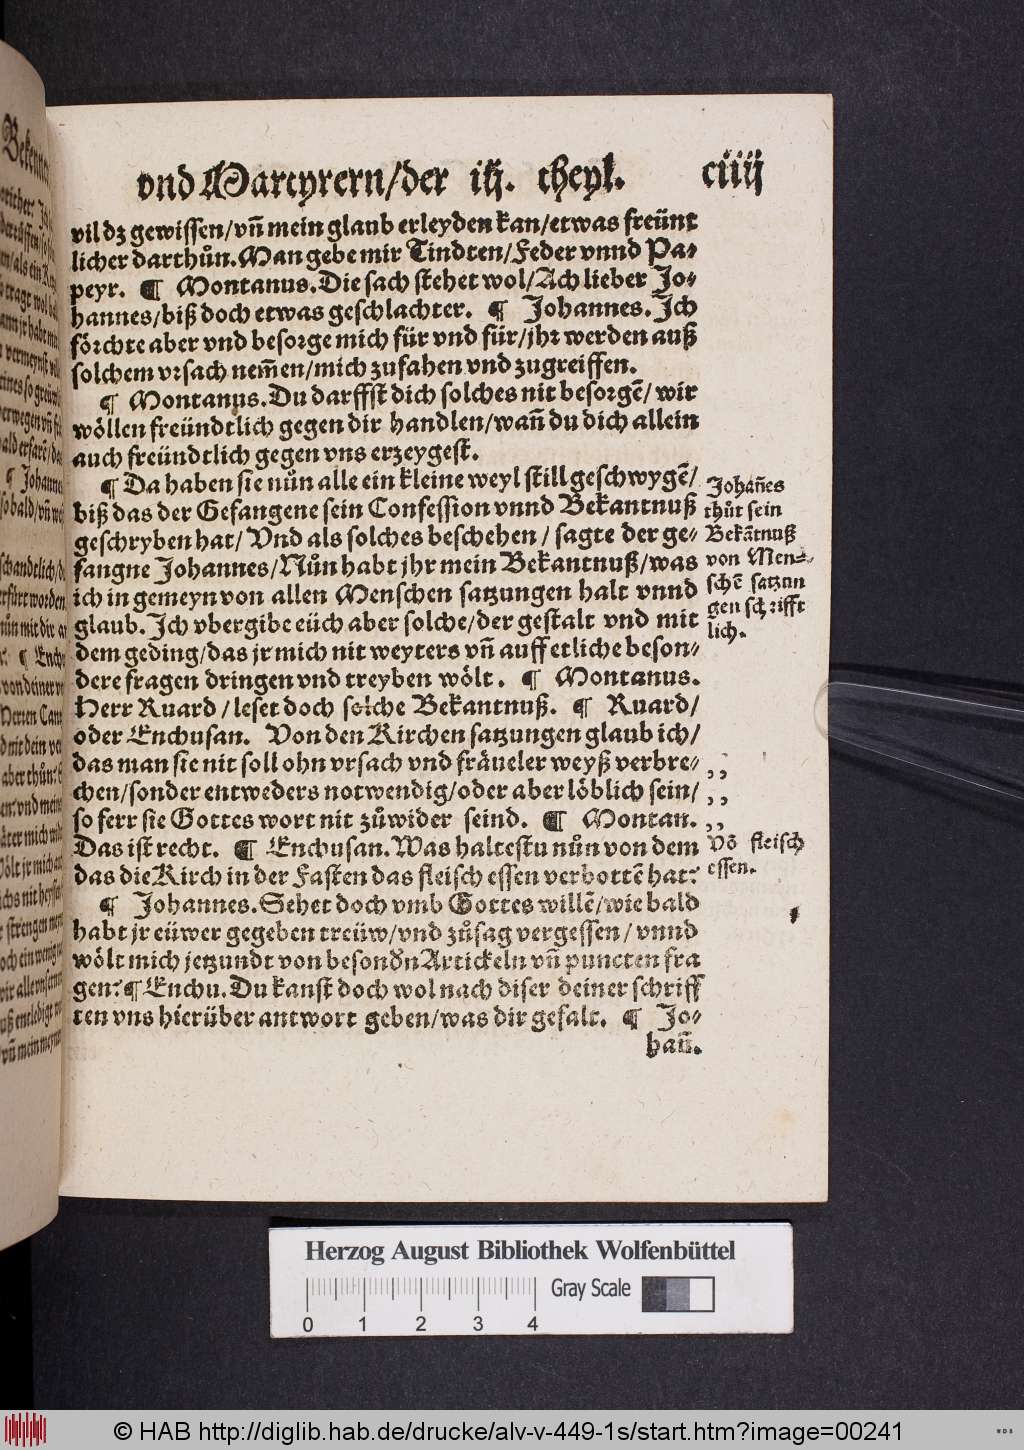 vnd Martyrern/der iij. theyl. ciiij
vil dz gewissen/vñ mein glaub erleyden kan/etwas freünt
licher darthůn. Man gebe mir Tindten/Feder vnnd Pa-
peyr. ¶ Montanus. Die sach stehet wol/Ach lieber Jo-
hannes/biß doch etwas geschlachter. ¶ Johannes. Ich
förchte aber vnd besorge mich für vnd für/jhr werden auß
solchem vrsach nem̃en/mich zufahen vnd zugreiffen.
¶ Montanus. Du darffst dich solches nit besorgē/wir
wöllen freündtlich gegen dir handlen/wañ du dich allein
auch freündtlich gegen vns erzeygest.
¶ Da haben sie nůn alle ein kleine weyl still geschwygē/
biß das der Gefangene sein Confession vnnd Bekantnuß
geschryben hat/ Vnd als solches beschehen/ sagte der ge-
fangne Johannes/Nůn habt jhr mein Bekantnuß/was
ich in gemeyn von allen Menschen satzungen halt vnnd
glaub. Ich vbergibe eüch aber solche/der gestalt vnd mit
dem geding/das jr mich nit weyters vñ auff etliche beson-
dere fragen dringen vnd treyben wölt. ¶ Montanus.
Herr Ruard/leset doch solche Bekantnuß. ¶ Ruard/
oder Enchusan. Von den Kirchen satzungen glaub ich/
das man sie nit soll ohn vrsach vnd fräueler weyß verbre-
chen/sonder entweders notwendig/oder aber löblich sein/
so ferr sie Gottes wort nit zůwider seind. ¶ Montan.
Das ist recht. ¶ Enchusan. Was haltestu nůn von dem
das die Kirch in der Fasten das fleisch essen verbottē hat?
¶ Johannes. Sehet doch vmb Gottes willē/wie bald
habt jr eüwer gegeben treüw/vnd zůsag vergessen/ vnnd
wölt mich jetzundt von besondn Artickeln vñ puncten fra
gen? ¶ Enchu. Du kanst doch wol nach diser deiner schriff
ten vns hierüber antwort geben/was dir gefalt. ¶ Jo-
hañ.
Johañes
thůt sein
Bekātnuß
von Men-
schē satzun
gen schrifft
lich.
,,
,,
,,
Võ fleisch
essen.
Herzog August Bibliothek Wolfenbüttel
Gray Scale
0 1 2 3 4
© HAB http://diglib.hab.de/drucke/alv-v-449-1s/start.htm?image=00241